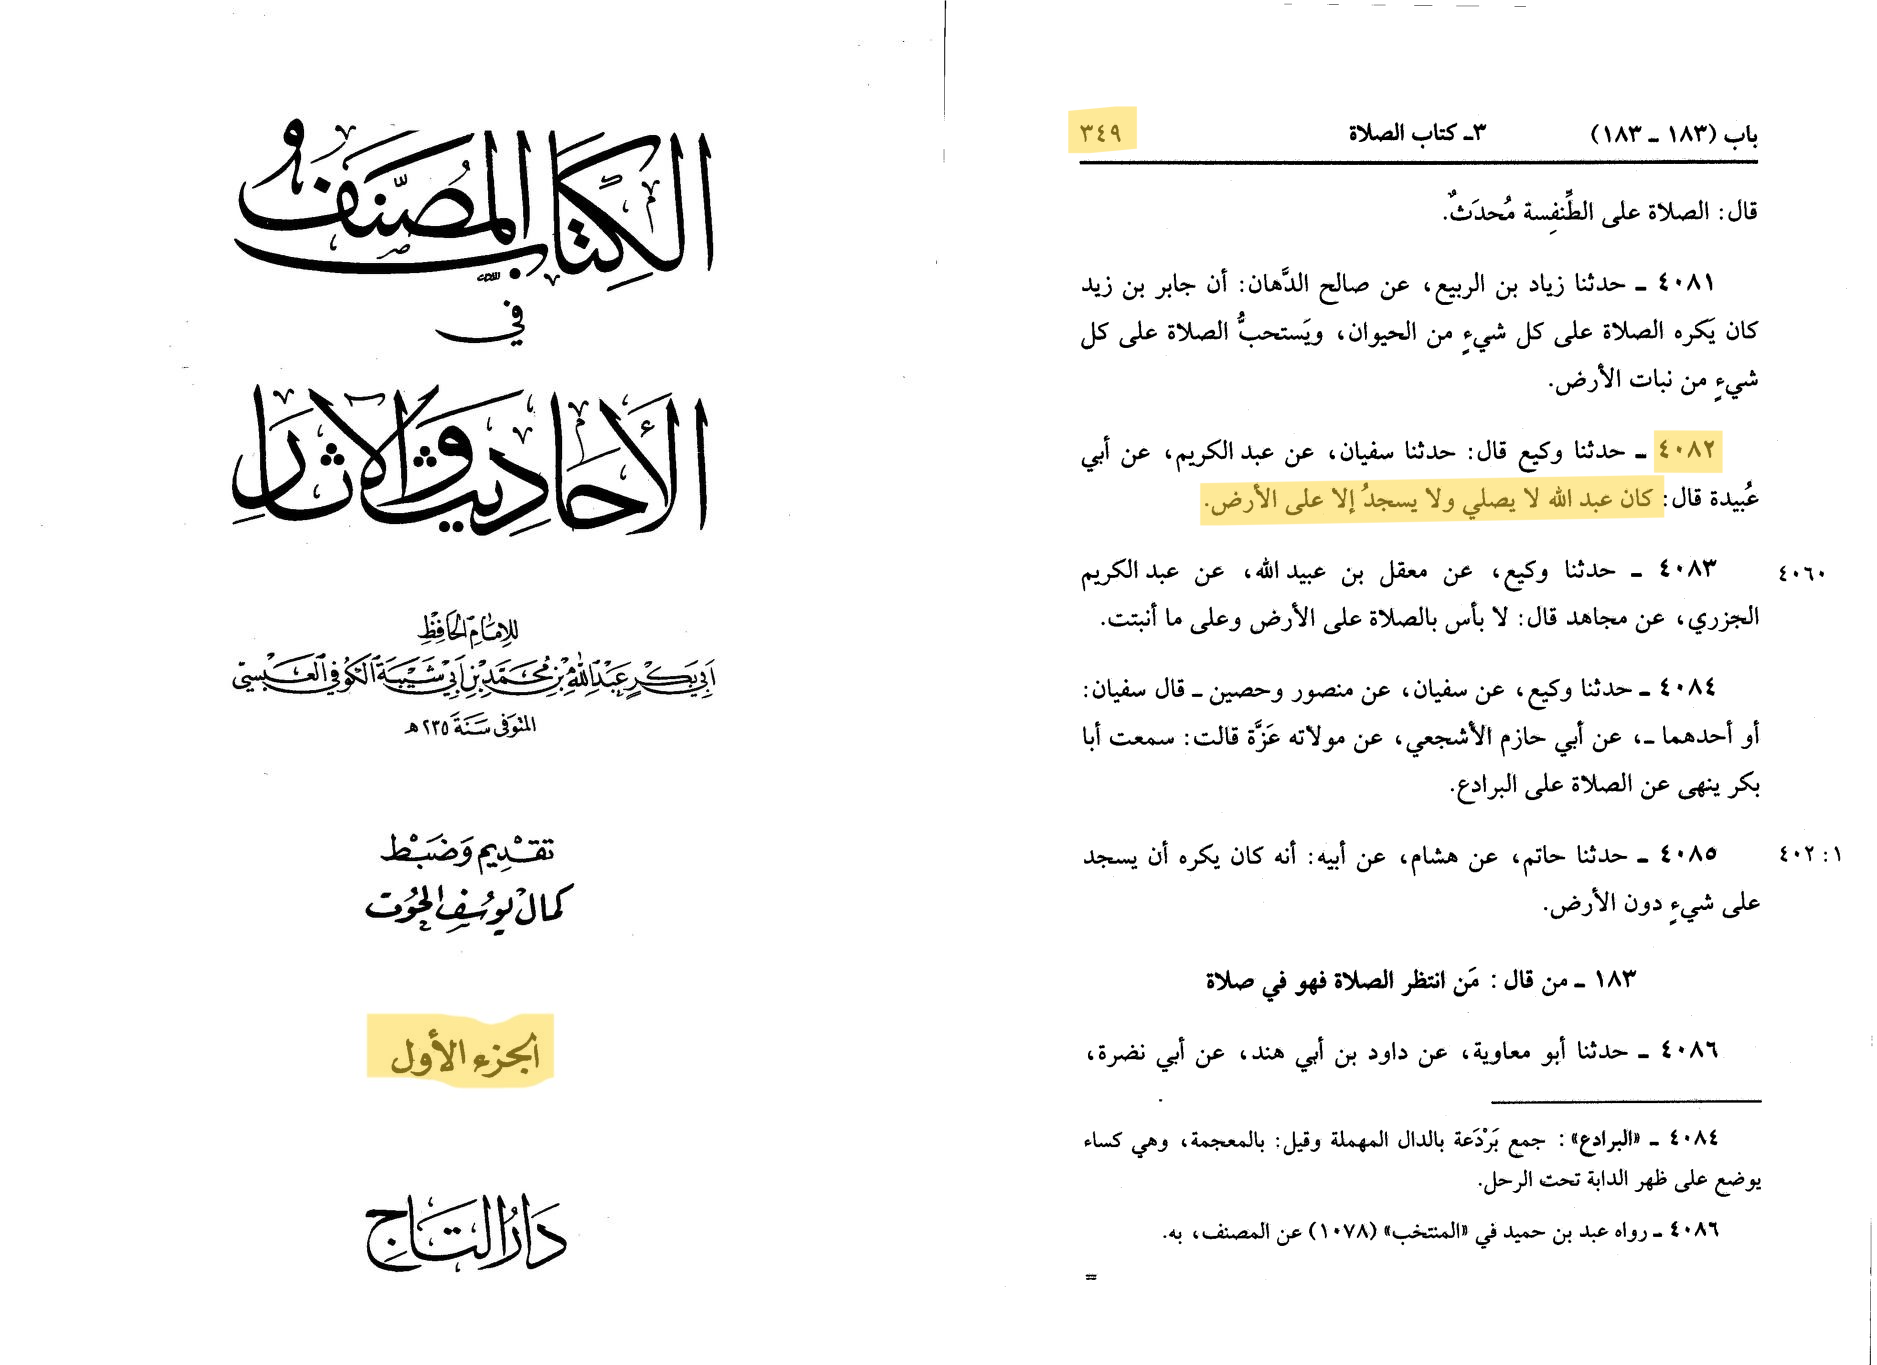 الكتاب المصنف
في
الأحاديث والآثار
للإمام الحافظ
أبي بكر عبد الله بن محمد بن أبي شيبة الكوفي العبسي
المتوفى سنة ٢٣٥ هـ
تقديم وضبط
كمال يوسف الحوت
الجزء الأول
دار التاج
باب (١٨٣ ـ ١٨٣) ٣ـ كتاب الصلاة ٣٤٩
قال: الصلاة على الطِّنفِسة مُحدَثٌ.
٤٠٨١ ـ حدثنا زياد بن الربيع، عن صالح الدَّهان: أن جابر بن زيد
كان يَكره الصلاة على كل شيءٍ من الحيوان، ويَستحبُّ الصلاة على كل
شيءٍ من نبات الأرض.
٤٠٨٢ ـ حدثنا وكيع قال: حدثنا سفيان، عن عبد الكريم، عن أبي
عُبيدة قال: كان عبد الله لا يصلي ولا يسجدُ إلا على الأرض.
٤٠٨٣ ـ حدثنا وكيع، عن معقل بن عبيد الله، عن عبد الكريم ٤٠٦٠
الجزري، عن مجاهد قال: لا بأس بالصلاة على الأرض وعلى ما أنبتت.
٤٠٨٤ ـ حدثنا وكيع، عن سفيان، عن منصور وحصين ـ قال سفيان:
أو أحدهما ـ، عن أبي حازم الأشجعي، عن مولاته عَزَّة قالت: سمعت أبا
بكر ينهى عن الصلاة على البرادع.
٤٠٨٥ ـ حدثنا حاتم، عن هشام، عن أبيه: أنه كان يكره أن يسجد ١: ٤٠٢
على شيءٍ دون الأرض.
١٨٣ ـ من قال: مَن انتظر الصلاة فهو في صلاة
٤٠٨٦ ـ حدثنا أبو معاوية، عن داود بن أبي هند، عن أبي نضرة،
٤٠٨٤ ـ «البرادع»: جمع بَرْدَعة بالدال المهملة وقيل: بالمعجمة، وهي كساء
يوضع على ظهر الدابة تحت الرحل.
٤٠٨٦ ـ رواه عبد بن حميد في «المنتخب» (١٠٧٨) عن المصنف، به.
=